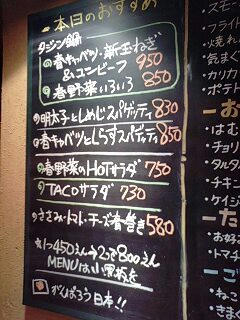 本日のおすすめ
タジン鍋
春キャベツ・新玉ねぎ
&コンビーフ 950
春野菜いろいろ 850
明太子としめじスパゲッティ 830
春キャベツとしらすスパゲッティ 850
春野菜のHOTサラダ 750
TACOサラダ 730
ささみ・トマト・チーズ春巻き 580
1つ450えん→2つで800えん
MENUは小黒板を
がんばろう日本!!
スモー
フライド
気まぐ
カリカ
ポテト
はむ
チョリ
タルタ
チキン
ケイジ
お好
トマチ